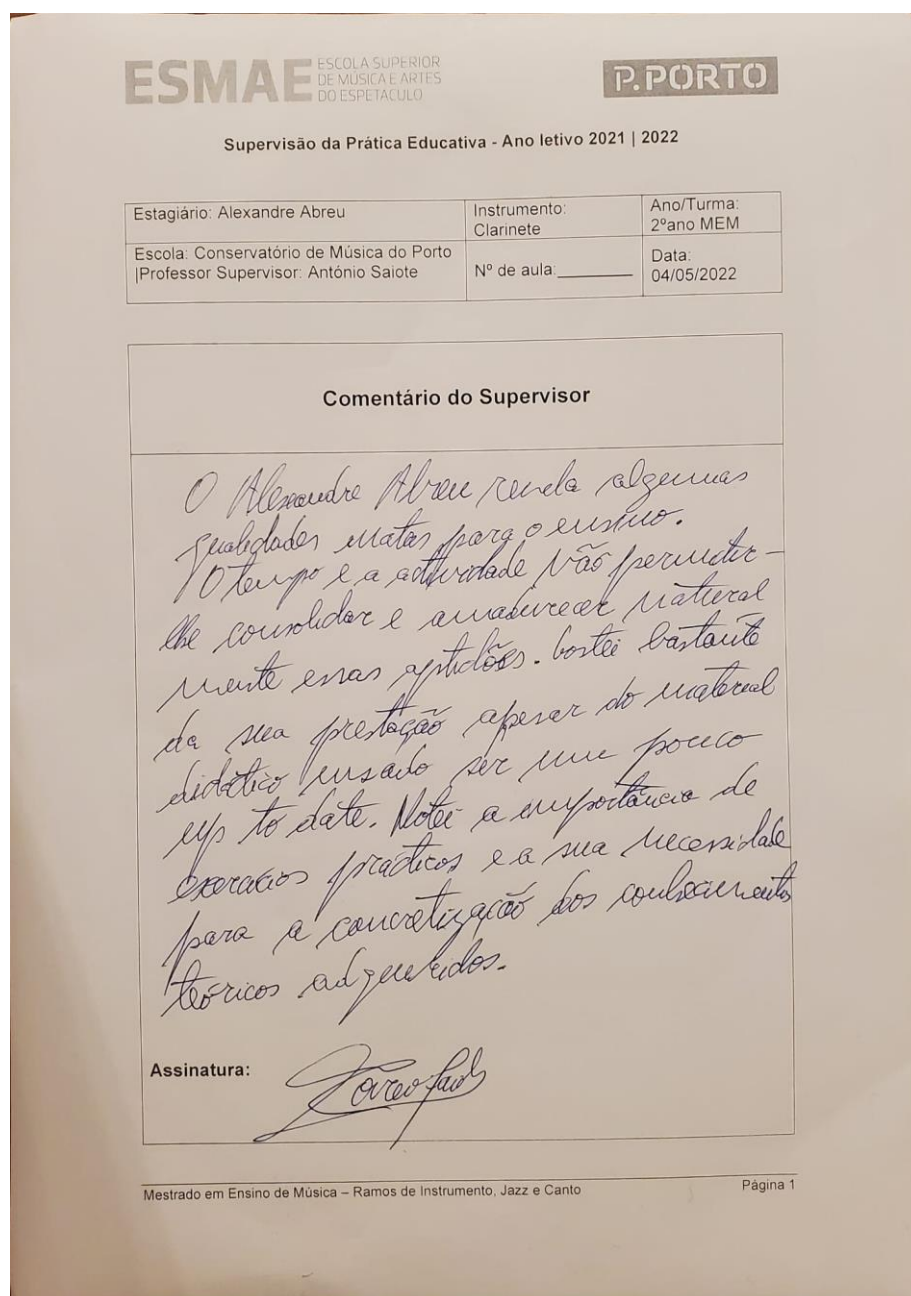 ESMAE ESCOLA SUPERIOR
DE MÚSICA E ARTES
DO ESPETÁCULO
P.PORTO
Supervisão da Prática Educativa - Ano letivo 2021 | 2022
Estagiário: Alexandre Abreu
Instrumento:
Clarinete
Ano/Turma:
2ºano MEM
Escola: Conservatório de Música do Porto
|Professor Supervisor: António Saiote
Nº de aula:________
Data:
04/05/2022
Comentário do Supervisor
O Alexandre Abreu revela algumas
qualidades natas para o ensino.
O tempo e a actividade vão permitir-
lhe consolidar e amadurecer natural
mente essas aptidões. Gostei bastante
da sua prestação apesar do material
didático usado ser um pouco
up to date. Notei a importância de
exercícios práticos e a sua necessidade
para a concretização dos conhecimentos
teóricos adquiridos.
Assinatura:
Mestrado em Ensino de Música – Ramos de Instrumento, Jazz e Canto
Página 1